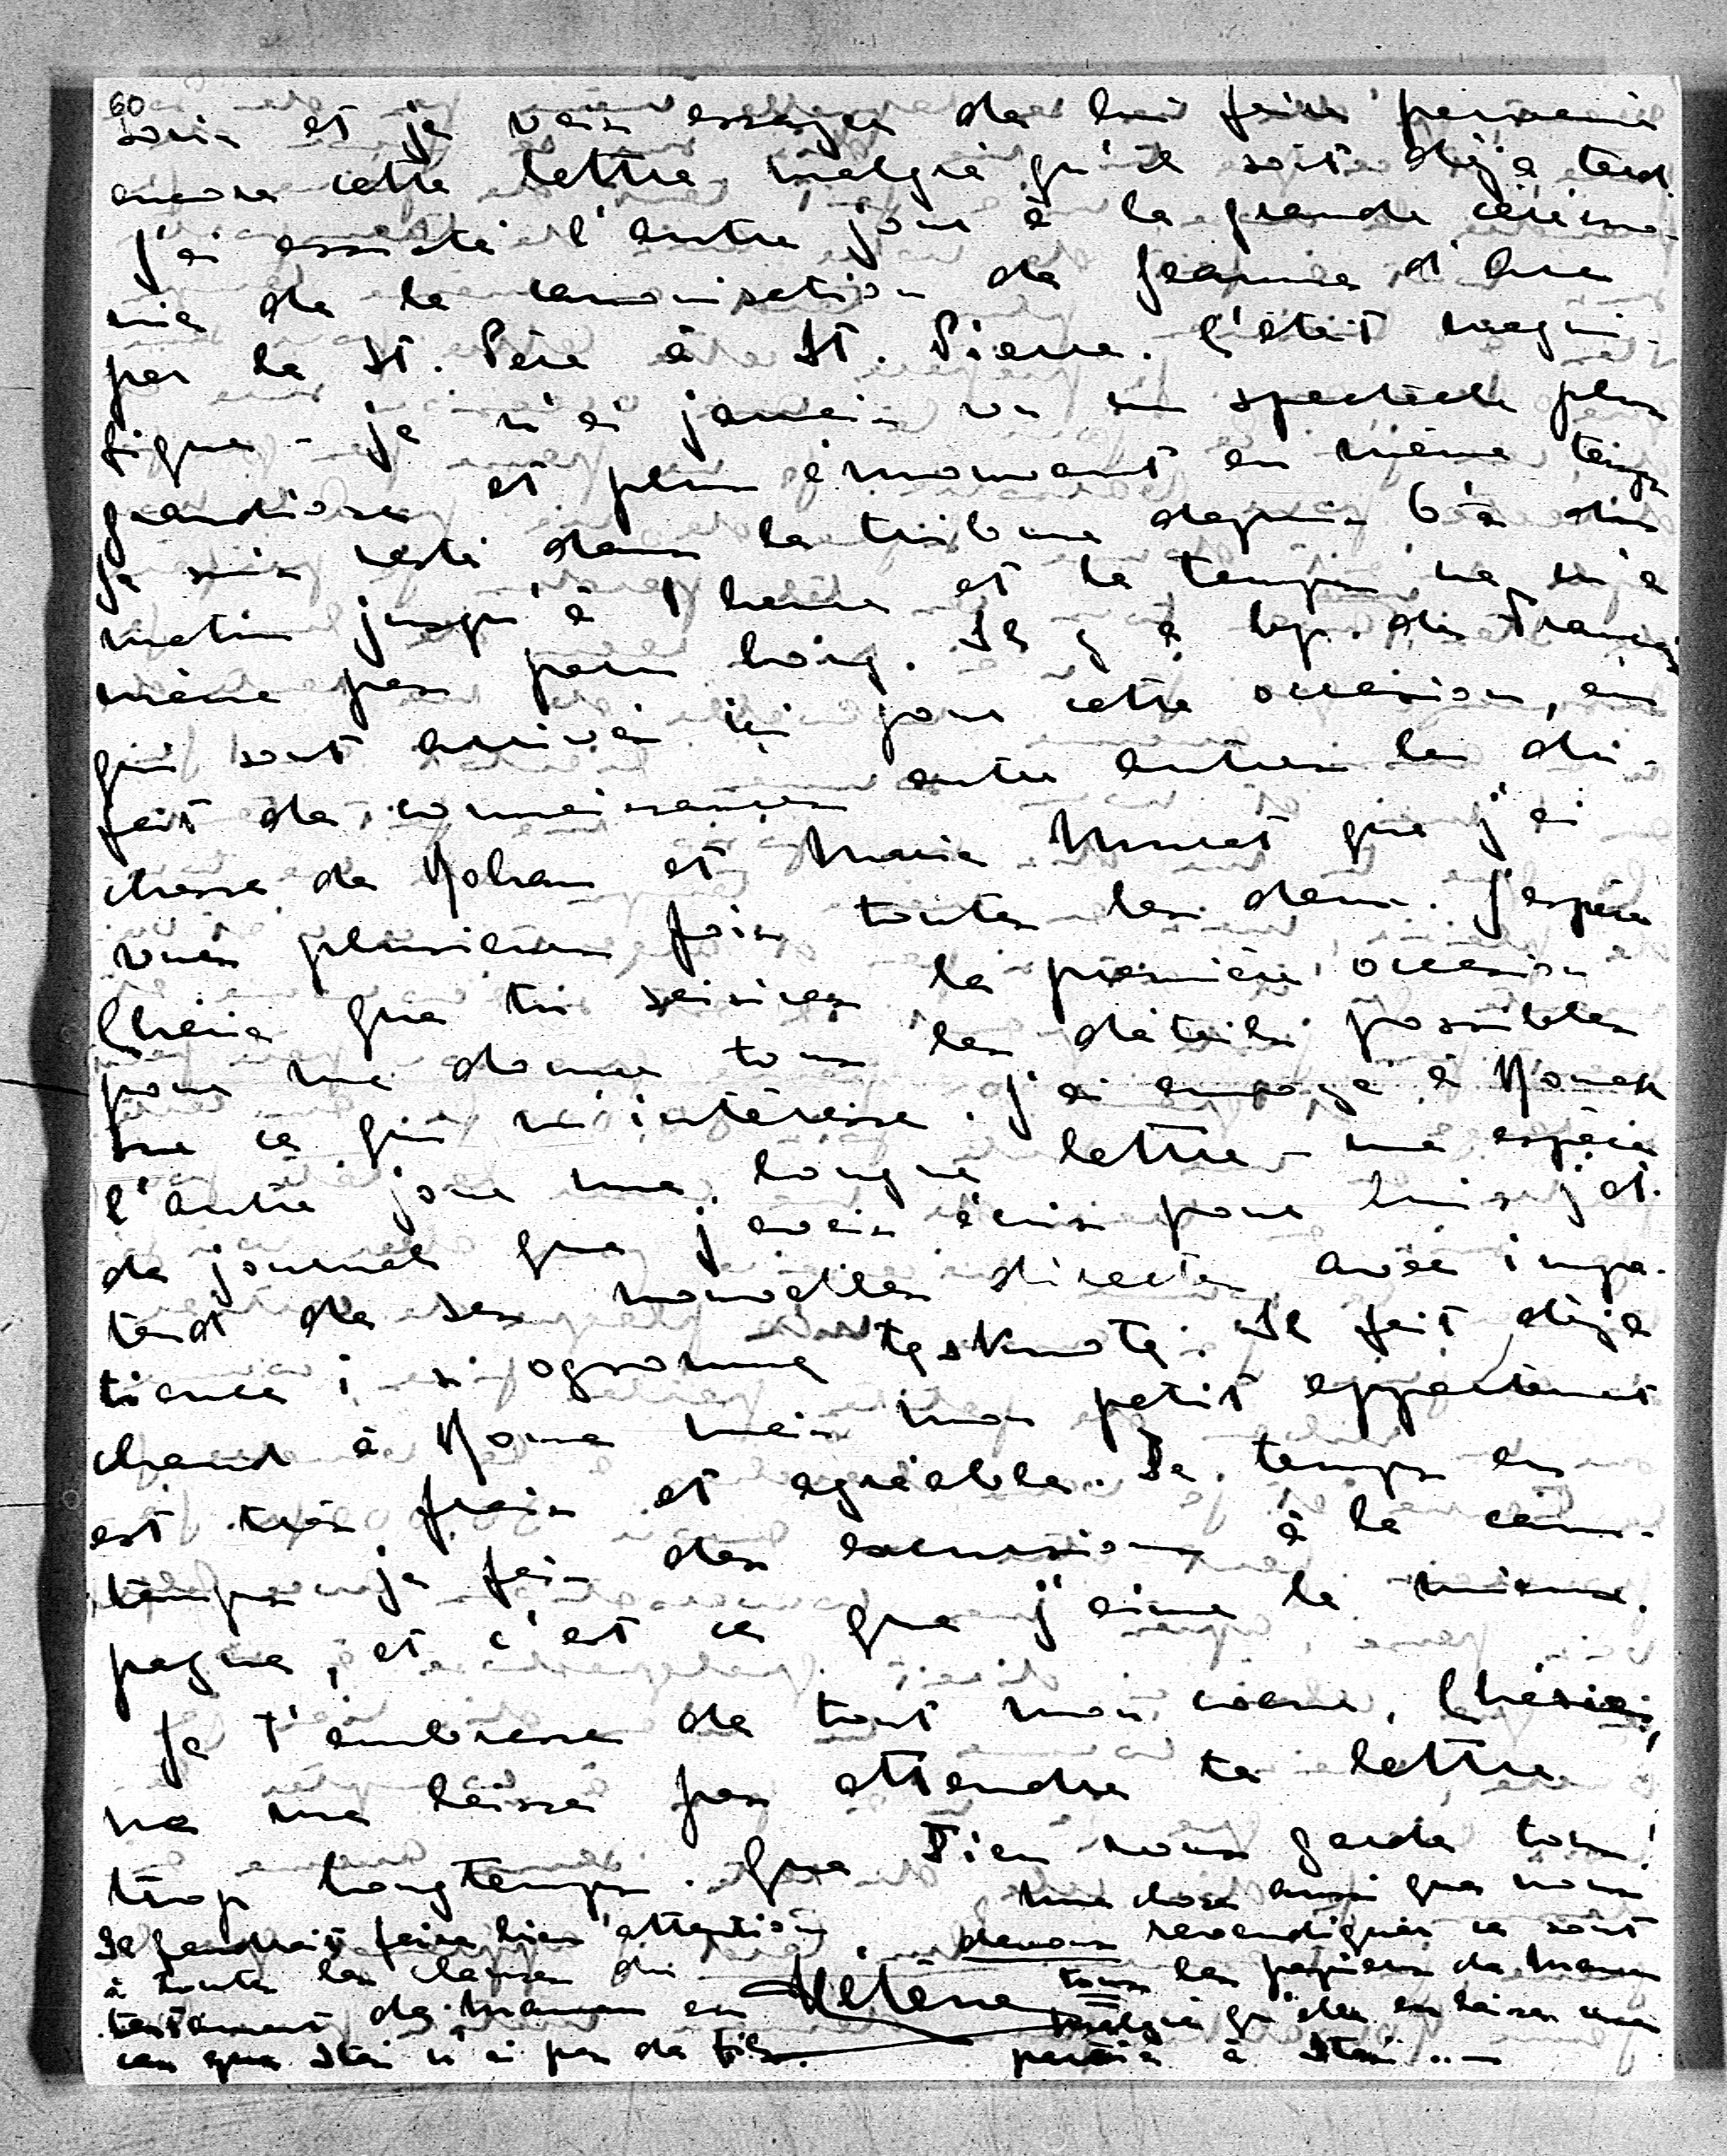 60
soir et je vais essayer de lui faire parvenir
encore cette lettre malgré qu'il soit déjà tard.
J'ai assisté l'autre jour à la grande cérémo-
nie de la canonisation de Jeanne d'Arc
par le St. Père à St. Pierre. C'était magni-
fique - je n'ai jamais vu un spectacle plus
grandiose et plus émouvant en même temps
Je suis resté dans la tribune depuis 6 h du
matin jusqu'à 1 heure et le temps ne m'a
même pas paru long. Il y a bp. des Français
qui sont arrivés ici pour cette occasion, en
fait de connaissances entre autres la du-
chesse de Rohan et Marie Murat que j'ai
vues plusieurs fois toutes les deux. J'espère
Chérie que tu saisiras la première occasion
pour me donner tous les détails possibles
sur ce qui m'intéresse. J'ai envoyé à Romek
l'autre jour une longue lettre - une espèce
de journal que j'avais écris pour lui et j'at-
tend de ses nouvelles directes avec impa-
tience i z ogromną tęsknotą. Il fait déjà
chaud à Rome mais mon petit appartement
est très frais et agréable. De temps en
temps je fais des excursions à la cam-
pagne, et c'est ce que j'aime le mieux.
Je t'embrasse de tout mon coeur, Chérie,
ne me laisse pas attendre ta lettre
trop longtemps. Que Dieu nous garde tous!
Hélène
Il faudrait faire bien attention
à toutes les clauses du
testament de Maman en
cas que Staś n'ai pas de fils.
Une chose aussi que nous
devons revendiquer ce sont
tous les papiers de Maman
malgré qu'elle en laisse une
partie à Staś ..—